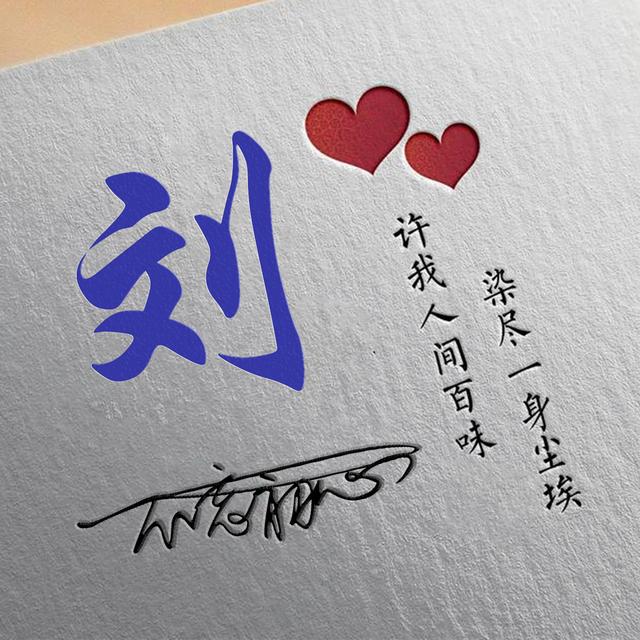 刘
许我人间百味
染尽一身尘埃